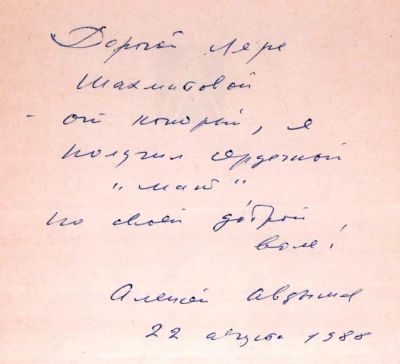 Дорогой Лере
Шахматовой
от которой, я
получил сердечный
"мат"
по своей доброй
воле!
Алексей
22 августа 1988